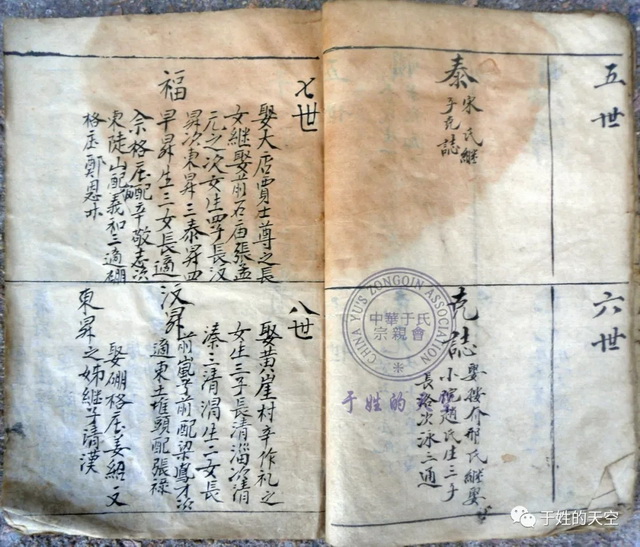 五世
泰
宋氏繼
子克誌
六世
克誌
娶接竹邢氏継娶
小趙氏生三子
長洛次泳三通
七世
福
娶大店賈士尊之長
女継娶前石庙張孟
元之次女生四子長汶
昇次東昇三泰昇四
早昇生三女長適
佘格庄配辛敬志次
東陡山配義和三適硼
格庄鄭恩
八世
汶昇
娶黃崖村辛作礼之
女生三子長清淄次清
溱三清渭生二女長
前嵐子前配梁鳳才次
適東土堆頭配張禄
娶硼格庄姜紹又
東昇之姊継子清漢
CHINA YU'S ZONGQIN ASSOCIATION
中華于氏
宗親會
于姓的
于姓的天空